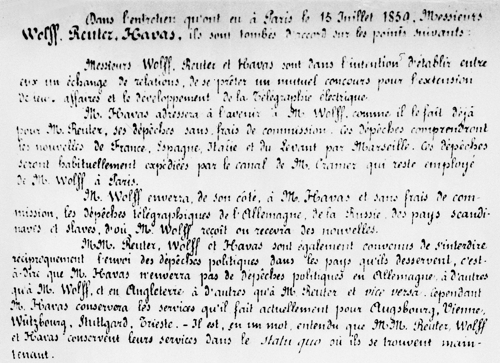 Dans l'entretien qu'ont eu à Paris le 15 Juillet 1859, Messieurs
Wolff, Reuter, Havas, ils sont tombés d'accord sur les points suivants:
Messieurs Wolff, Reuter et Havas sont dans l'intention d'établir entre
eux un échange de relations, de se prêter un mutuel concours pour l'extension
de leurs affaires et le développement de la Télégraphie électrique.
M. Havas adressera à l'avenir à M. Wolff, comme il le fait déjà
pour M. Reuter, ses dépêches sans frais de commission. Ces dépêches comprendront
les nouvelles de France, Espagne, Italie et du Levant par Marseille. Ces dépêches
seront habituellement expédiées par le canal de M. Cramer qui reste employé
de M. Wolff à Paris.
M. Wolff enverra, de son côté, à M. Havas et sans frais de com-
mission, les dépêches télégraphiques de l'Allemagne, de la Russie, des pays scandi-
naves et slaves, d'où M. Wolff reçoit ou recevra des nouvelles.
M.M. Reuter, Wolff et Havas sont également convenus de s'interdire
réciproquement l'envoi des dépêches politiques dans les pays qu'ils desservent, c'est-
à-dire que M. Havas n'enverra pas de dépêches politiques en Allemagne, à d'autres
qu'à M. Wolff, et en Angleterre à d'autres qu'à M. Reuter et vice versa. Cependant
M. Havas conservera les services qu'il fait actuellement pour Augsbourg, Vienne,
Wützbourg, Stuttgard, Trieste. - Il est, en un mot, entendu que M.M. Reuter, Wolff
et Havas conservent leurs services dans le statu quo où ils se trouvent main-
tenant.